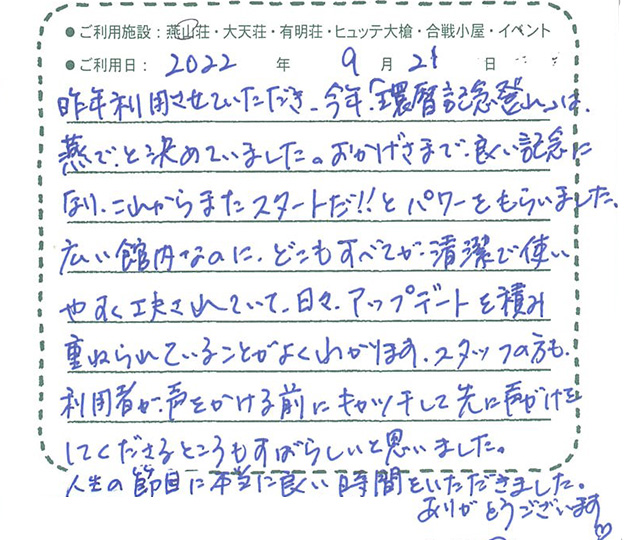 ●ご利用施設：燕山荘・大天荘・有明荘・ヒュッテ大槍・合戦小屋・イベント
●ご利用日：2022 年 9 月 21 日
昨年利用させていただき、今年、「還暦記念登山」は、
燕で、と決めていました。おかげさまで、良い記念に
なり、これからまたスタートだ!!とパワーをもらいました。
広い館内なのに、どこもすべてが、清潔で使い
やすく工夫されていて、日々、アップデートを積み
重ねられていることがよくわかります。スタッフの方も、
利用者が、声をかける前にキャッチして先に声がけを
してくださるところもすばらしいと思いました。
人生の節目に本当に良い時間をいただきました。
ありがとうございます♡